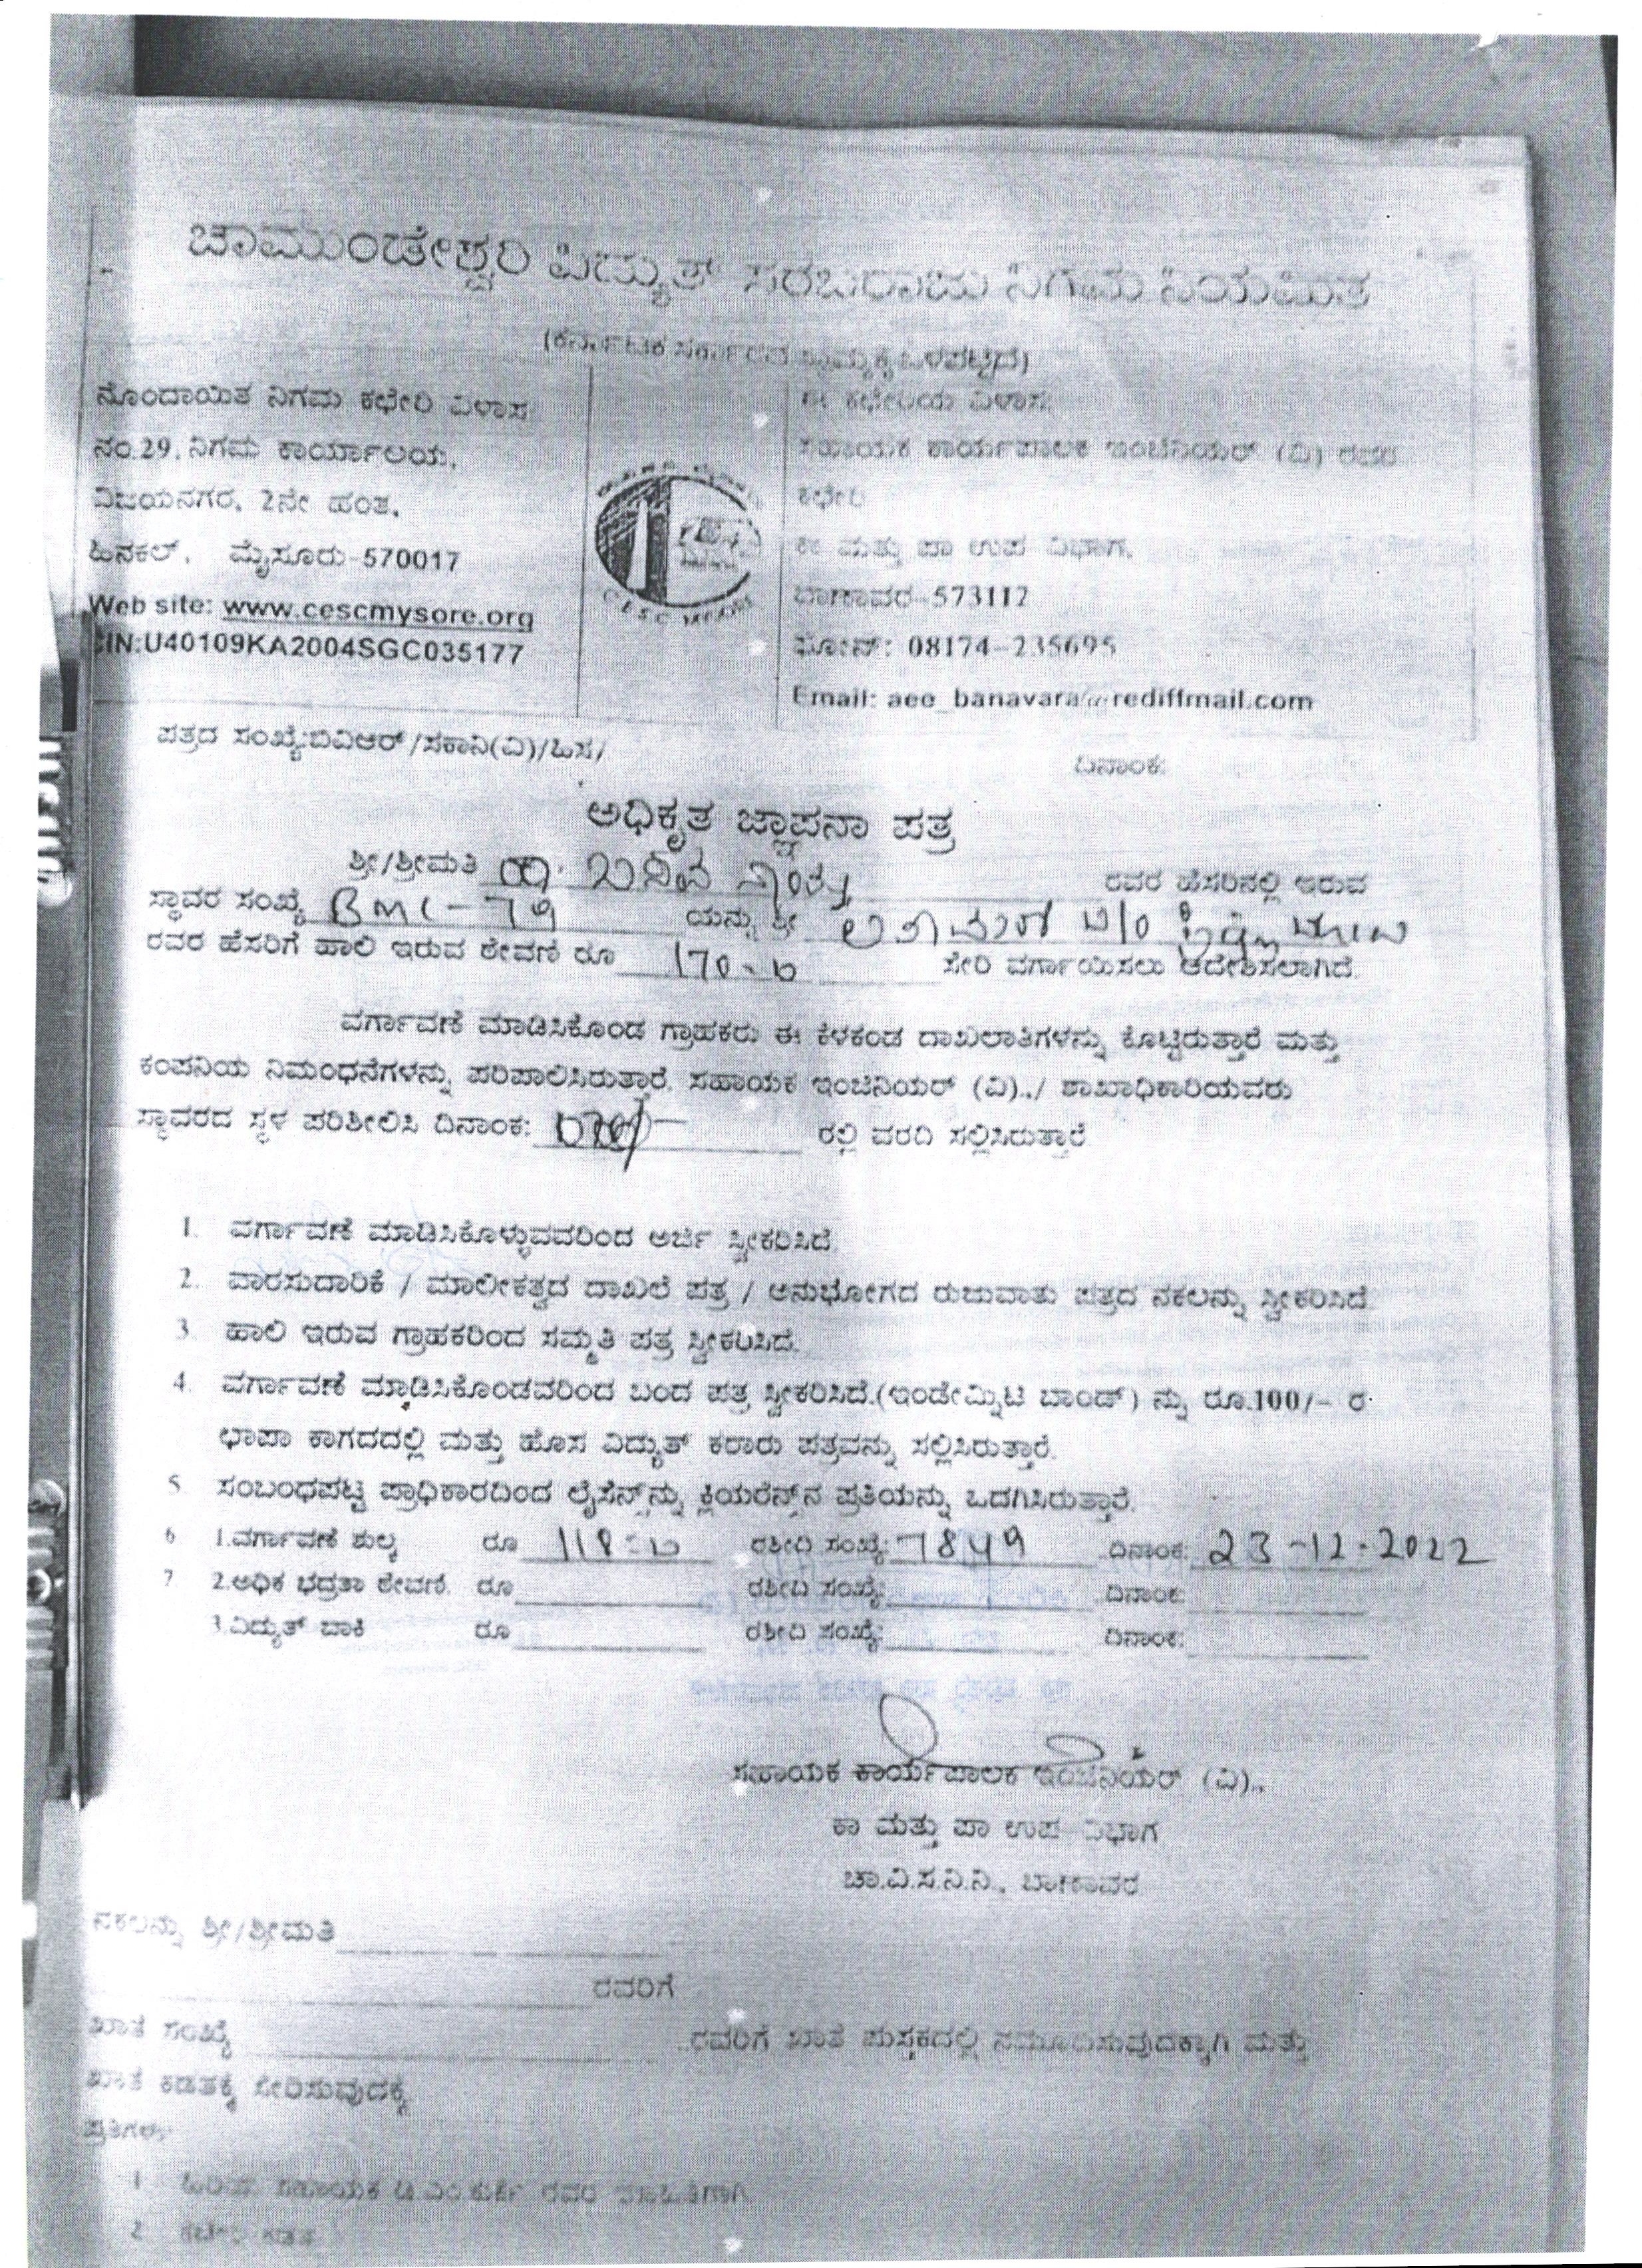 ಚಾಮುಂಡೇಶ್ವರಿ ವಿದ್ಯುತ್ ಸರಬರಾಜು ನಿಗಮ ನಿಯಮಿತ
(ಕರ್ನಾಟಕ ಸರ್ಕಾರದ ಸ್ವಾಮ್ಯಕ್ಕೆ ಒಳಪಟ್ಟಿದೆ)
ನೊಂದಾಯಿತ ನಿಗಮ ಕಛೇರಿ ವಿಳಾಸ
ನಂ.29, ನಿಗಮ ಕಾರ್ಯಾಲಯ,
ವಿಜಯನಗರ, 2ನೇ ಹಂತ,
ಹಿನಕಲ್, ಮೈಸೂರು-570017
Web site: www.cescmysore.org
CIN:U40109KA2004SGC035177
ಈ ಕಛೇರಿಯ ವಿಳಾಸ:
ಸಹಾಯಕ ಕಾರ್ಯಪಾಲಕ ಇಂಜಿನಿಯರ್ (ವಿ) ರವರ
ಕಛೇರಿ
ಕಾ ಮತ್ತು ಪಾ ಉಪ ವಿಭಾಗ,
ಬಾಣಾವರ-573112
ಫೋನ್: 08174-235695
Email: aee_banavara@rediffmail.com
ಪತ್ರದ ಸಂಖ್ಯೆ:ಬಿವಿಆರ್/ಸಕಾನಿ(ವಿ)/ಹಿಸ/
ದಿನಾಂಕ:
ಅಧಿಕೃತ ಜ್ಞಾಪನಾ ಪತ್ರ
ಶ್ರೀ/ಶ್ರೀಮತಿ ರವರ ಹೆಸರಿನಲ್ಲಿ ಇರುವ
ಸ್ಥಾವರ ಸಂಖ್ಯೆ BML-79 ಯನ್ನು ಶ್ರೀ
ರವರ ಹೆಸರಿಗೆ ಹಾಲಿ ಇರುವ ಠೇವಣಿ ರೂ 170-00 ಸೇರಿ ವರ್ಗಾಯಿಸಲು ಆದೇಶಿಸಲಾಗಿದೆ.
ವರ್ಗಾವಣೆ ಮಾಡಿಸಿಕೊಂಡ ಗ್ರಾಹಕರು ಈ ಕೆಳಕಂಡ ದಾಖಲಾತಿಗಳನ್ನು ಕೊಟ್ಟಿರುತ್ತಾರೆ ಮತ್ತು
ಕಂಪನಿಯ ನಿಮಂಧನೆಗಳನ್ನು ಪರಿಪಾಲಿಸಿರುತ್ತಾರೆ. ಸಹಾಯಕ ಇಂಜಿನಿಯರ್ (ವಿ)../ ಶಾಖಾಧಿಕಾರಿಯವರು
ಸ್ಥಾವರದ ಸ್ಥಳ ಪರಿಶೀಲಿಸಿ ದಿನಾಂಕ: ರಲ್ಲಿ ವರದಿ ಸಲ್ಲಿಸಿರುತ್ತಾರೆ
1. ವರ್ಗಾವಣೆ ಮಾಡಿಸಿಕೊಳ್ಳುವವರಿಂದ ಅರ್ಜಿ ಸ್ವೀಕರಿಸಿದೆ.
2. ವಾರಸುದಾರಿಕೆ / ಮಾಲೀಕತ್ವದ ದಾಖಲೆ ಪತ್ರ / ಅನುಭೋಗದ ರುಜುವಾತು ಪತ್ರದ ನಕಲನ್ನು ಸ್ವೀಕರಿಸಿದೆ.
3. ಹಾಲಿ ಇರುವ ಗ್ರಾಹಕರಿಂದ ಸಮ್ಮತಿ ಪತ್ರ ಸ್ವೀಕರಿಸಿದೆ.
4. ವರ್ಗಾವಣೆ ಮಾಡಿಸಿಕೊಂಡವರಿಂದ ಬಂದ ಪತ್ರ ಸ್ವೀಕರಿಸಿದೆ.(ಇಂಡೇಮ್ನಿಟಿ ಬಾಂಡ್) ನ್ನು ರೂ.100/- ರ
ಛಾಪಾ ಕಾಗದದಲ್ಲಿ ಮತ್ತು ಹೊಸ ವಿದ್ಯುತ್ ಕರಾರು ಪತ್ರವನ್ನು ಸಲ್ಲಿಸಿರುತ್ತಾರೆ.
5. ಸಂಬಂಧಪಟ್ಟ ಪ್ರಾಧಿಕಾರದಿಂದ ಲೈಸೆನ್ಸ್‌ನ್ನು ಕ್ಲಿಯರೆನ್ಸ್‌ನ ಪ್ರತಿಯನ್ನು ಒದಗಿಸಿರುತ್ತಾರೆ.
6 1.ವರ್ಗಾವಣೆ ಶುಲ್ಕ ರೂ 118-00 ರಶೀದಿ ಸಂಖ್ಯೆ: 7849 ದಿನಾಂಕ: 23-12-2022
7 2.ಅಧಿಕ ಭದ್ರತಾ ಠೇವಣಿ. ರೂ ರಶೀದಿ ಸಂಖ್ಯೆ: ದಿನಾಂಕ:
3.ವಿದ್ಯುತ್ ಬಾಕಿ ರೂ ರಶೀದಿ ಸಂಖ್ಯೆ: ದಿನಾಂಕ:
ಸಹಾಯಕ ಕಾರ್ಯಪಾಲಕ ಇಂಜಿನಿಯರ್ (ವಿ).,
ಕಾ ಮತ್ತು ಪಾ ಉಪ ವಿಭಾಗ
ಚಾ.ವಿ.ಸ.ನಿ.ನಿ., ಬಾಣಾವರ
ನಕಲನ್ನು ಶ್ರೀ/ಶ್ರೀಮತಿ
ರವರಿಗೆ
ಖಾತೆ ಸಂಖ್ಯೆ ರವರಿಗೆ ಖಾತೆ ಪುಸ್ತಕದಲ್ಲಿ ನಮೂದಿಸುವುದಕ್ಕಾಗಿ ಮತ್ತು
ಖಾತೆ ಕಡತಕ್ಕೆ ಸೇರಿಸುವುದಕ್ಕೆ
ಪ್ರತಿಗಳು:
1 ಹಿರಿಯ ಸಹಾಯಕ ರವರ ಮಾಹಿತಿಗಾಗಿ
2 ಕಛೇರಿ ಕಡತ